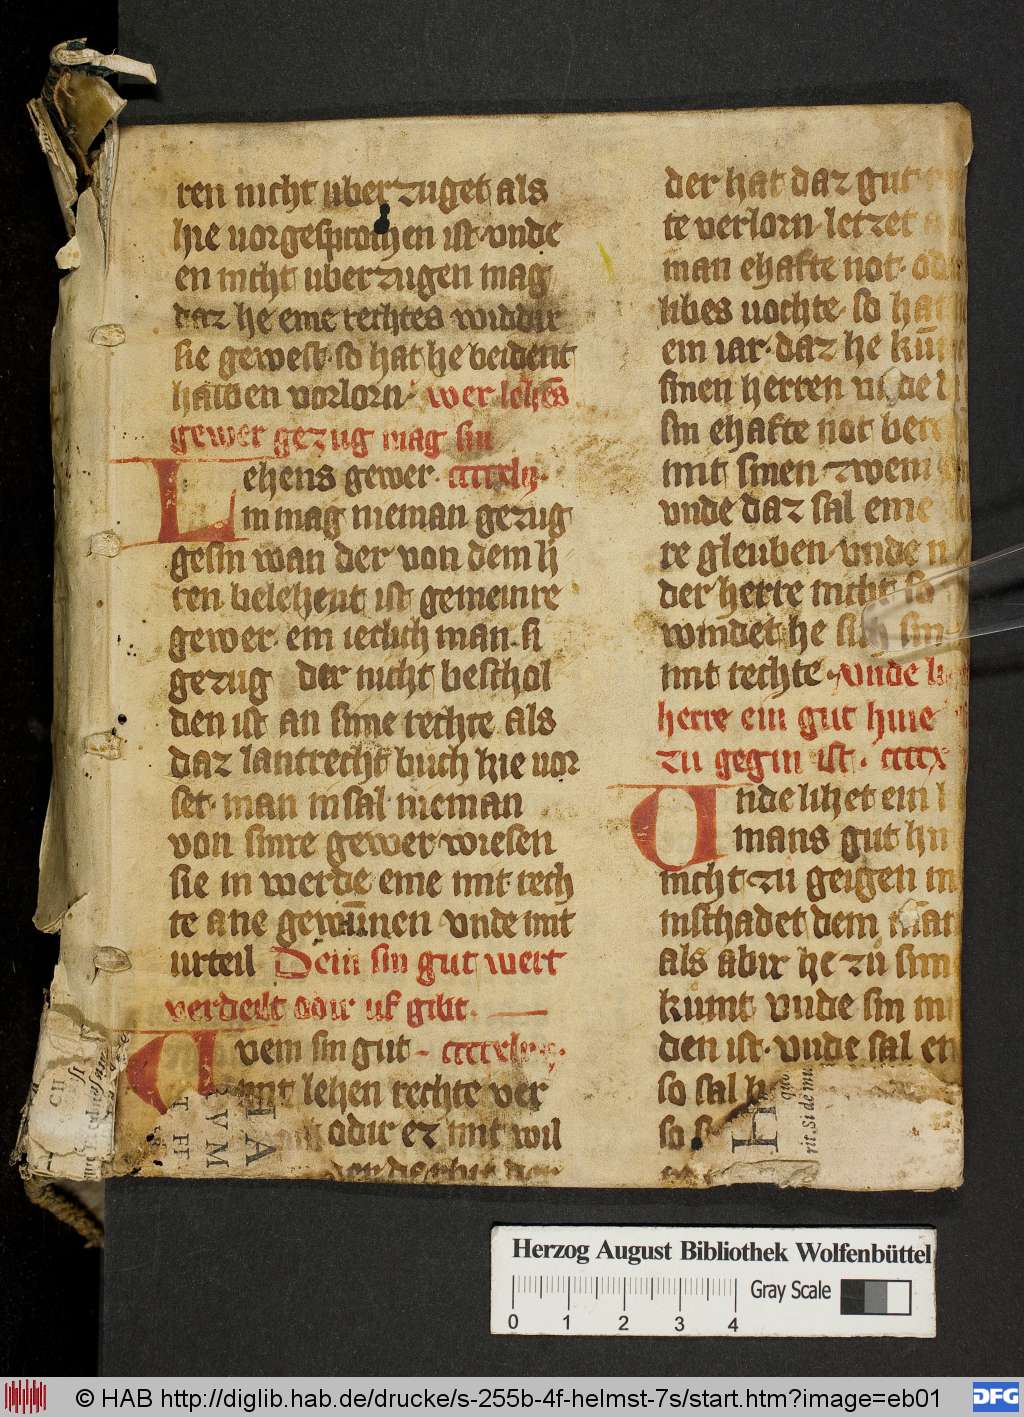 ren nicht uber zuget als
hie uorgesprochen ist vnde
en nicht uberzugen mag
daz he eme rechtes widdir
sie gewest so hat he beident
halben vorlorn wer lehēs
gewer gezug mag sin
Lehens gewer· ccccxlij·
in mag nieman gezug
gesin wan der von dem h
ren belehent ist gemeinre
gewer· ein ieclich man·si
gezug der nicht beschol
den ist an sime rechte als
daz lantrecht buch hie uor
set· man insal nieman
von sinre gewer wiesen
sie in werde eme mit rech
te ane gewūnen vnde mit
urteil Dem sin gut wert
verdeilt odir uf gibt·
Swem sin gut
mit lehen rechte ver
odir ez mit wil
der hat daz gut
te verlorn· letzet
man ehafte not·
libes uochte· so hat
ein iar· daz he kūn
sinen herren vnde
sin ehafte not
mit sinen zwein
vnde daz sal eme
re gleuben· vnde
der herre nicht so
windet he sich sin
mit rechte· vnde
herre ein gut hine
zu gegin ist· ccccx
Unde lihet ein
mans gut hin
nicht zu geigen
inschadet dem man
als abir he zu sim
kumt vnde sin
den ist· vnde sal
so sal
so
Herzog August Bibliothek Wolfenbüttel
Gray Scale
0 1 2 3 4
© HAB http://diglib.hab.de/drucke/s-255b-4f-helmst-7s/start.htm?image=eb01
DFG